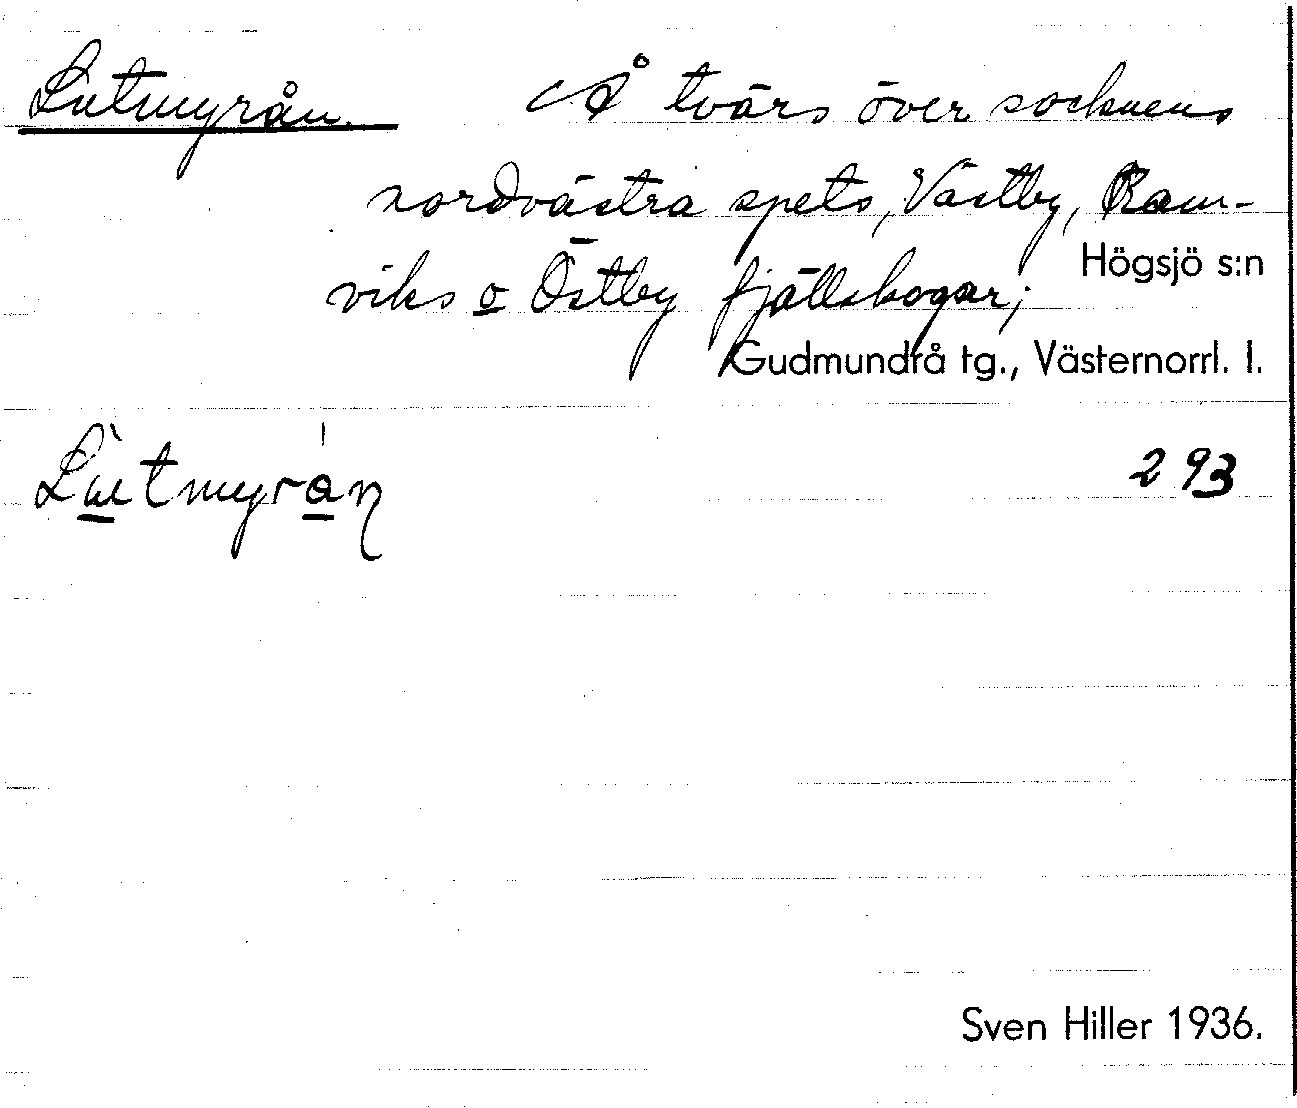 Lutmyrån. Å tvärs över socknens
nordvästra spets, Västby, Ram-
viks o Östby fjällskogar;
Högsjö s:n
Gudmundrå tg., Västernorrl. l.
Lùtmyrán 293
Sven Hiller 1936.